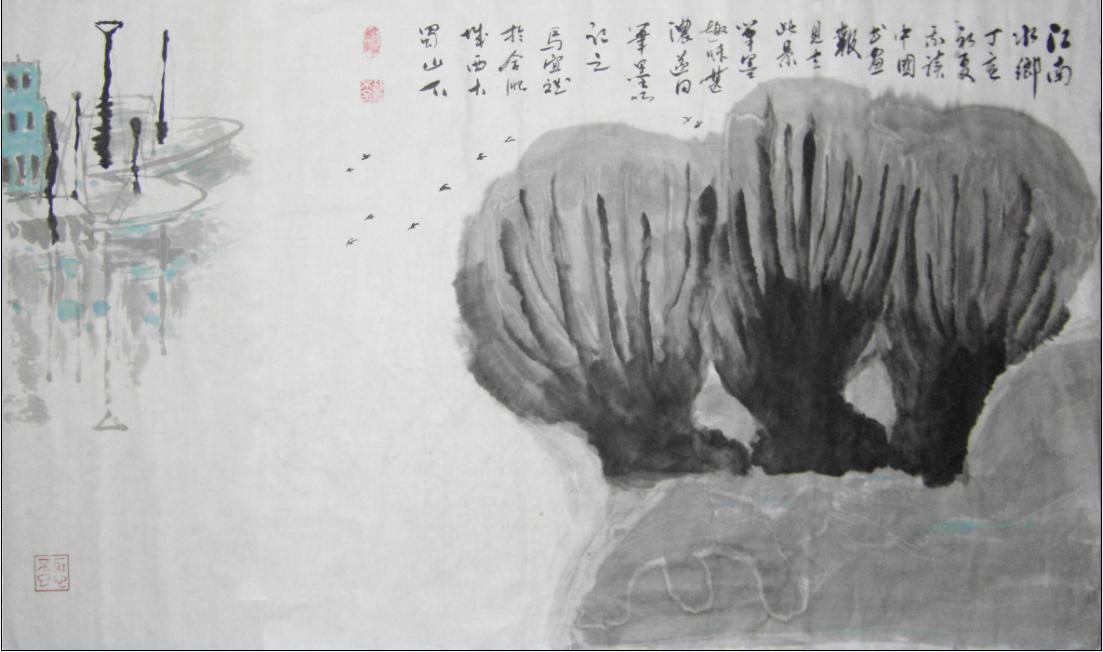 江南
水鄉
丁亥
初夏
我读
中國
书畫
報
見
此景
筆墨
趣味甚
濃遂
筆墨
記之
馬宜
於合肥
城西大
蜀山下